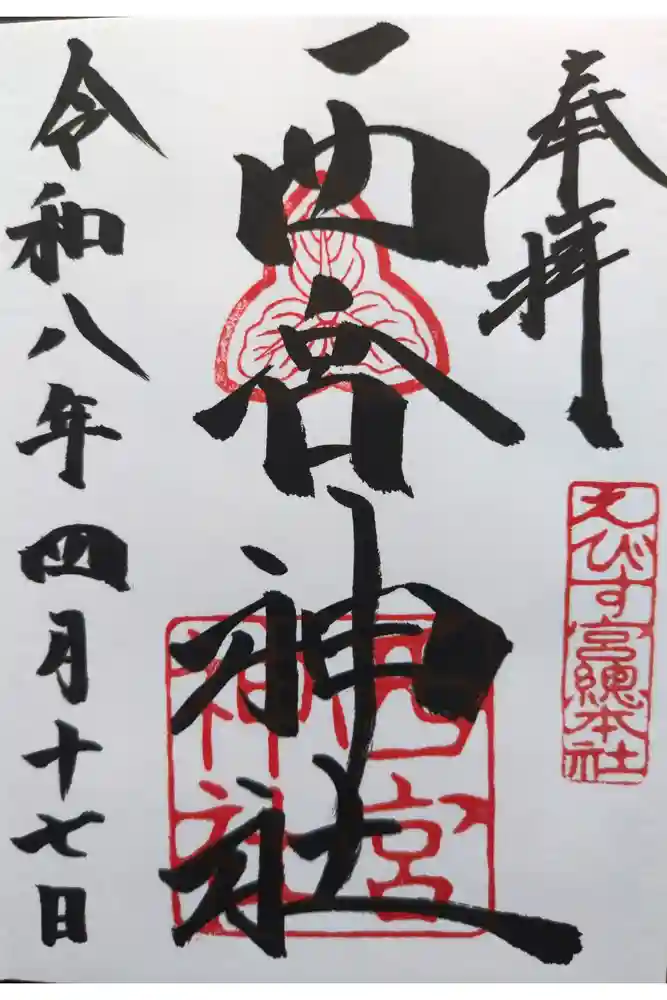 奉拝
えびす宮總本社
西宮神社
西宮神社
令和八年四月十七日